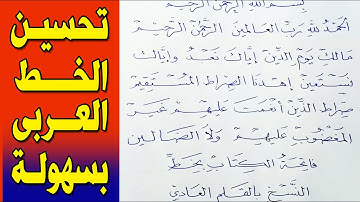 تحسين
الخط
العربى
بسهولة
بسم الله الرحمن الرحيم
الحمد لله رب العالمين الرحمن الرحيم
مالك يوم الدين إياك نعبد وإياك
نستعين اهدنا الصراط المستقيم
صراط الذين أنعمت عليهم غير
المغضوب عليهم ولا الضالين
فاتحة الكتاب بخط
النسخ بالقلم العادي